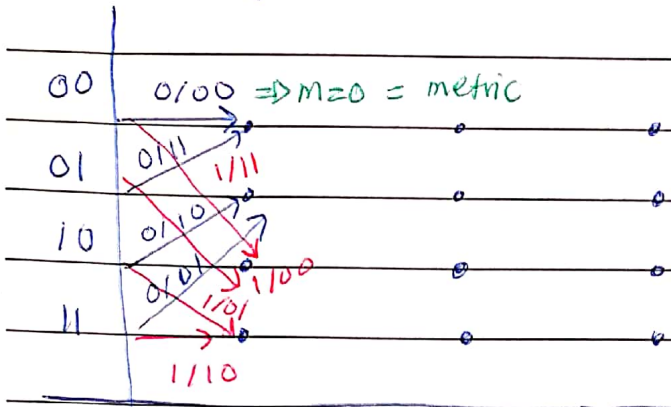 00 0/00 ⇒ m=0 = metric
01 0/11 1/11
10 0/10 1/00
0/01 1/01
11
1/10